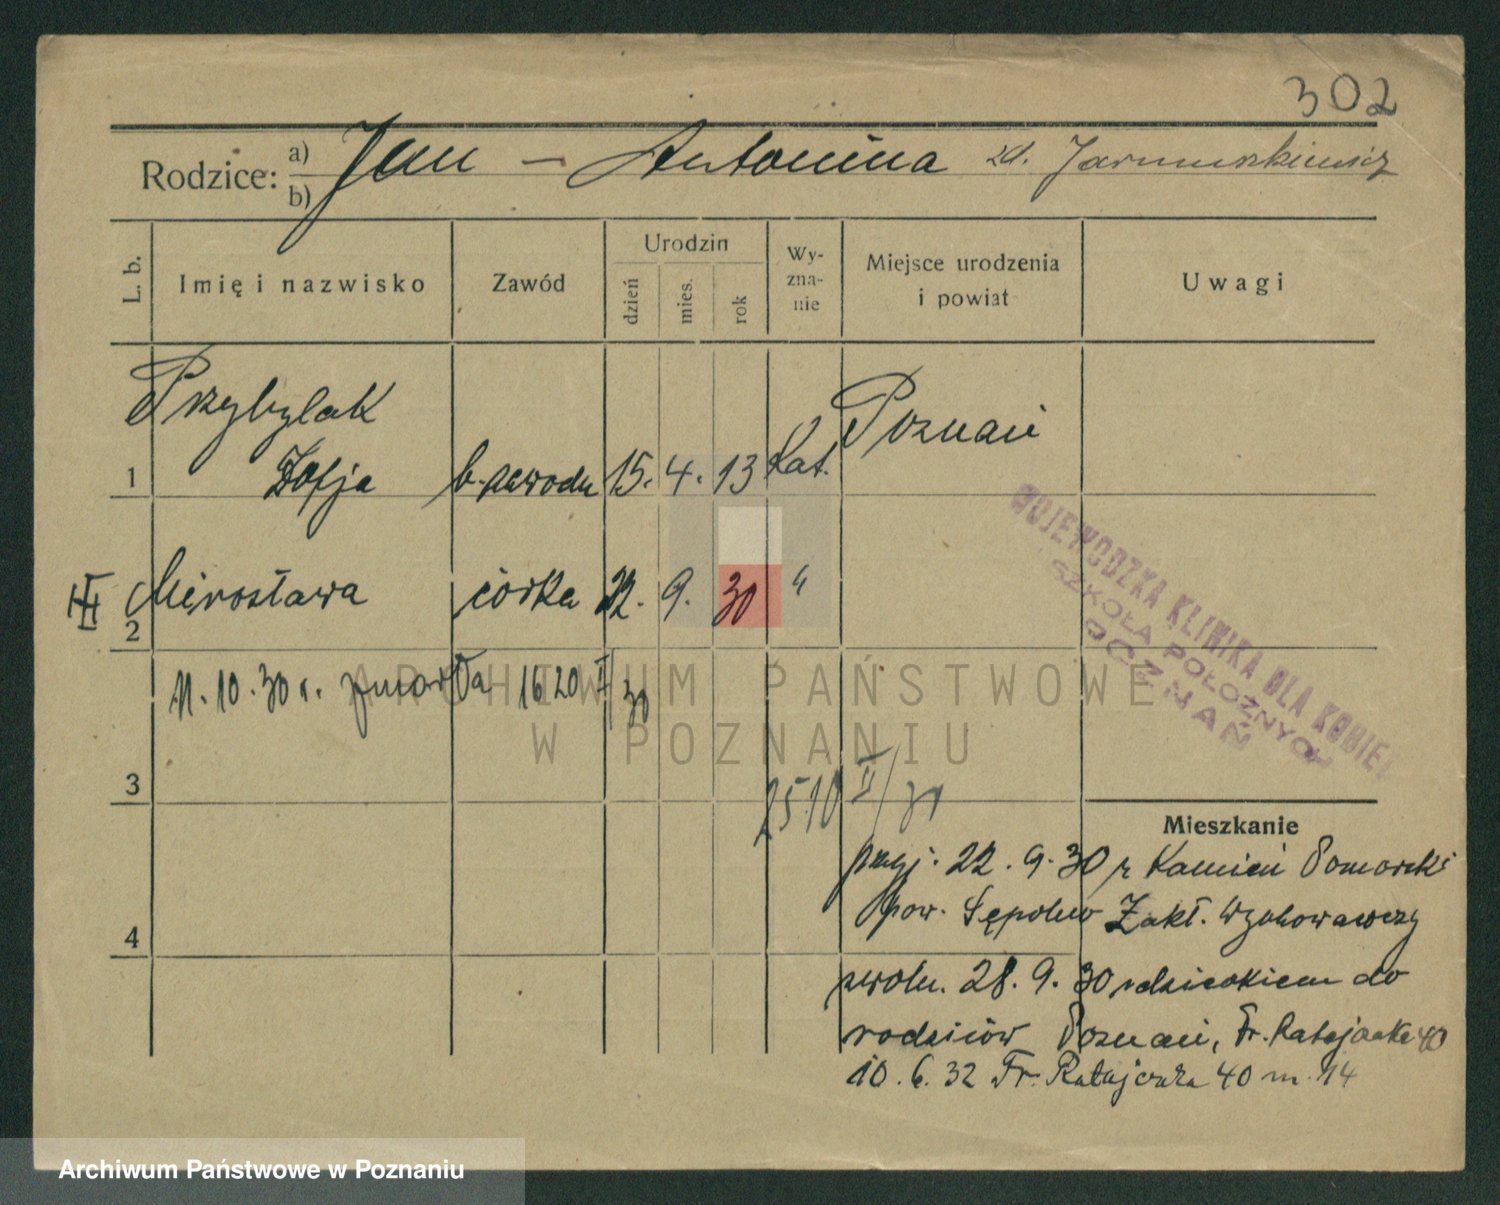 302
Rodzice: a) b) Jan – Antonina zd. Jarmuszkiewicz
L. b.
Imię i nazwisko
Zawód
Urodzin
dzień
mies.
rok
Wy-
zna-
nie
Miejsce urodzenia
i powiat
Uwagi
Przybylak
1 Zofja b. zawodu 15. 4. 13 Kat. Poznań
III Mirosława córka 22. 9. 30 "
2
11. 10. 30 r. zmarła 16 20 I/30
WOJEWÓDZKA KLINIKA DLA KOBIET
SZKOŁA POŁOŻNYCH
POZNAŃ
3
2510 II/31
Mieszkanie
przyj. 22. 9. 30 z Kamień Pomorski
4 pow. Sępolno Zakł. Wychowawczy
zwoln. 28. 9. 30 z dzieckiem do
rodziców Poznań, Fr. Ratajczaka 40
10. 6. 32 Fr. Ratajczaka 40 m. 14
ARCHIWUM PAŃSTWOWE
W POZNANIU
Archiwum Państwowe w Poznaniu